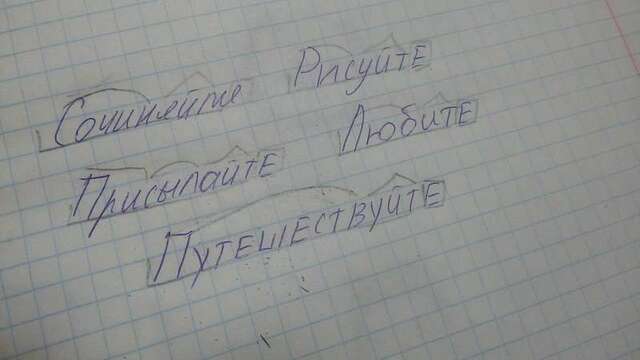 Сочиняйте Рисуйте
Присылайте Любите
Путешествуйте